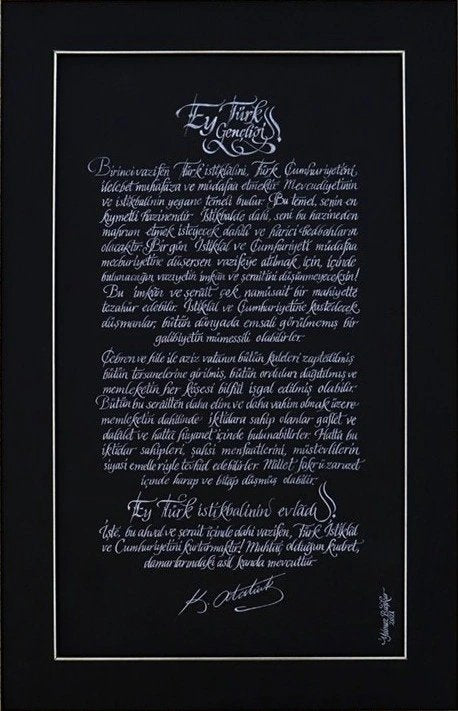 Ey Türk
Gençliği!
Birinci vazifen Türk istiklâlini, Türk Cumhuriyetini,
ilelebet muhafaza ve müdafaa etmektir. Mevcudiyetinin
ve istikbalinin yegane temeli budur. Bu temel, senin en
kıymetli hazinendir. İstikbalde dahi, seni bu hazineden
mahrum etmek isteyecek dahili ve harici bedhahların
olacaktır. Bir gün, İstiklâl ve Cumhuriyeti müdafaa
mecburiyetine düşersen, vazifeye atılmak için, içinde
bulunacağın vaziyetin imkân ve şeraitini düşünmeyeceksin!
Bu imkân ve şerait, çok namüsait bir mahiyette
tezahür edebilir. İstiklâl ve Cumhuriyetine kastedecek
düşmanlar, bütün dünyada emsali görülmemiş bir
galibiyetin mümessili olabilirler.
Cebren ve hile ile aziz vatanın bütün kaleleri zaptedilmiş
bütün tersanelerine girilmiş, bütün orduları dağıtılmış ve
memleketin her köşesi bilfiil işgal edilmiş olabilir.
Bütün bu şeraitten daha elim ve daha vahim olmak üzere
memleketin dahilinde iktidara sahip olanlar gaflet ve
dalâlet ve hatta hıyanet içinde bulunabilirler. Hatta bu
iktidar sahipleri, şahsi menfaatlerini, müstevlilerin
siyasi emelleriyle tevhid edebilirler. Millet fakrü zaruret
içinde harap ve bitap düşmüş olabilir.
Ey Türk istikbalinin evladı!
İşte, bu ahval ve şerait içinde dahi vazifen, Türk İstiklâl
ve Cumhuriyetini kurtarmaktır! Muhtaç olduğun kudret,
damarlarındaki asil kanda mevcuttur.
K. Atatürk
Yılmaz